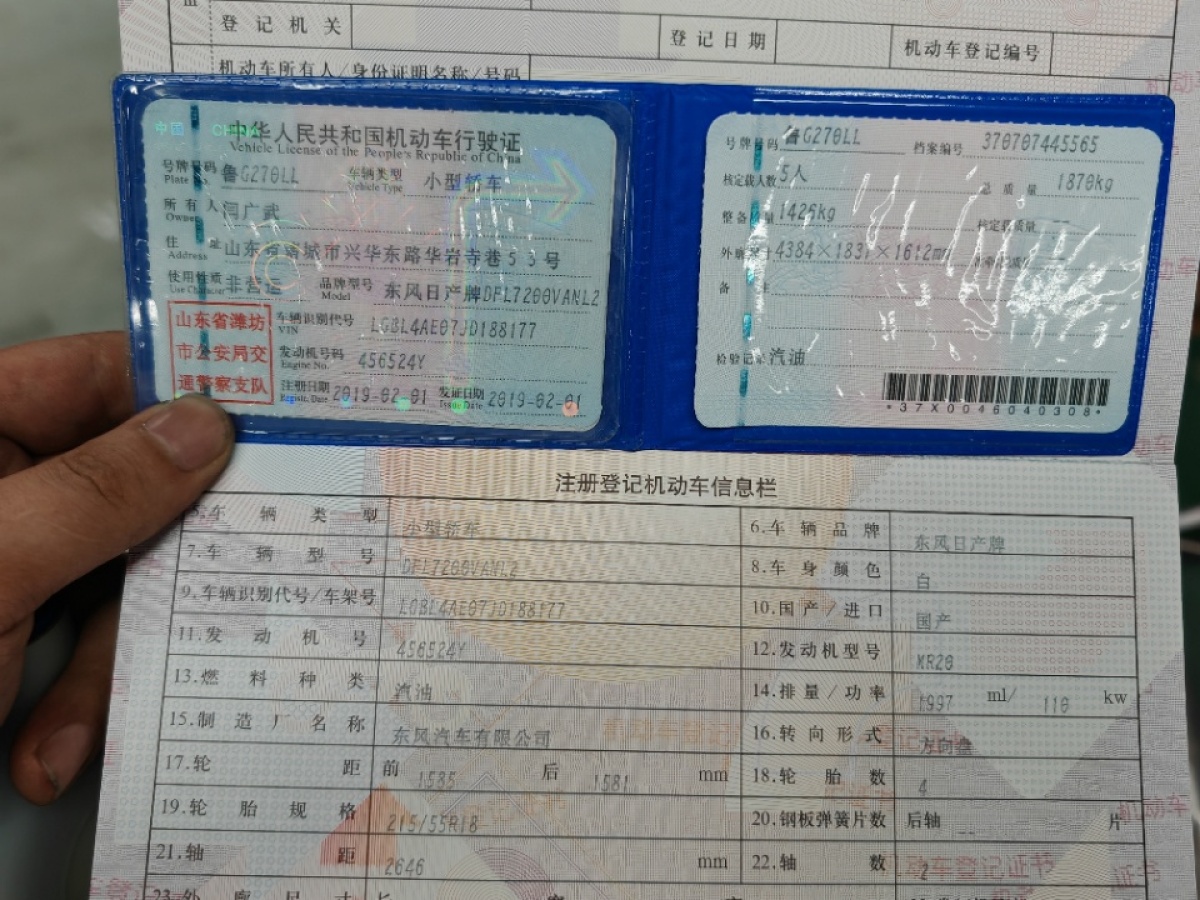 登记机关 登记日期 机动车登记编号
机动车所有人/身份证明名称/号码
中国 CHINA
中华人民共和国机动车行驶证
Vehicle License of the People's Republic of China
号牌号码 鲁G270LL 车辆类型 小型轿车
Plate Vehicle Type
所有人 闫广武
Owner
住址 山东省诸城市兴华东路华岩寺巷53号
Address
使用性质 非营运 品牌型号 东风日产牌DFL7200VANL2
Use Character Model
山东省潍坊
市公安局交
通警察支队
车辆识别代号 LGBL4AE07JD188177
VIN
发动机号码 456524Y
Engine No.
注册日期 2019-02-01 发证日期 2019-02-01
Register Date Issue Date
号牌号码 鲁G270LL 档案编号 370707445565
核定载人数 5人 总质量 1870kg
整备质量 1426kg 核定载质量 --
外廓尺寸 4384×183 ×1612mm
备注
检验记录 汽油
*37X0046040308*
注册登记机动车信息栏
5.车辆类型 小型轿车 6.车辆品牌 东风日产牌
7.车辆型号 DFL7200VANL2 8.车身颜色 白
9.车辆识别代号/车架号 LGBL4AE07JD188177 10.国产/进口 国产
11.发动机号 456524Y 12.发动机型号 MR20
13.燃料种类 汽油 14.排量/功率 1997 ml/ 110 kw
15.制造厂名称 东风汽车有限公司 16.转向形式 方向盘
17.轮距 前 1585 后 1581 mm 18.轮胎数 4
19.轮胎规格 215/55R18 20.钢板弹簧片数 后轴 -- 片
21.轴距 2646 mm 22.轴数 2